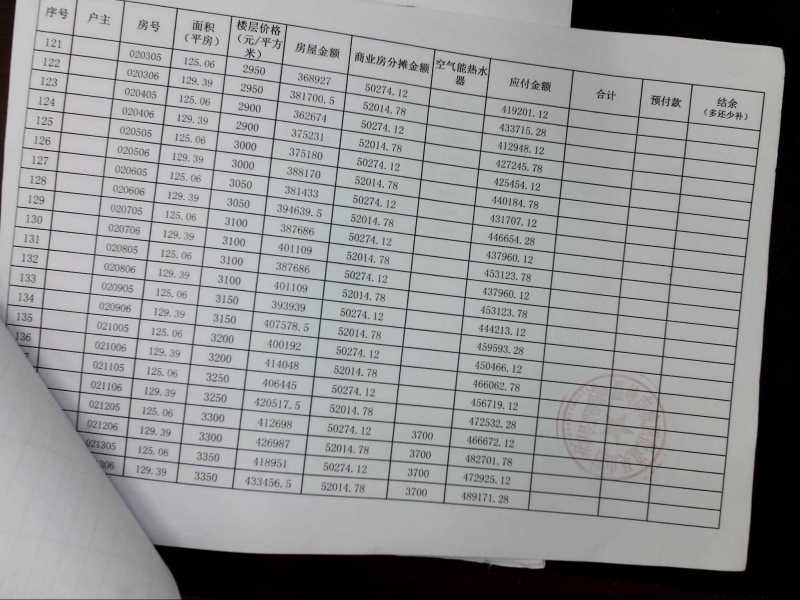 序号 户主 房号 面积（平房） 楼层价格（元/平方米） 房屋金额 商业房分摊金额 空气能热水器 应付金额 合计 预付款 结余（多还少补）
121 020305 125.06 2950 368927 50274.12 419201.12
122 020306 129.39 2950 381700.5 52014.78 433715.28
123 020405 125.06 2900 362674 50274.12 412948.12
124 020406 129.39 2900 375231 52014.78 427245.78
125 020505 125.06 3000 375180 50274.12 425454.12
126 020506 129.39 3000 388170 52014.78 440184.78
127 020605 125.06 3050 381433 50274.12 431707.12
128 020606 129.39 3050 394639.5 52014.78 446654.28
129 020705 125.06 3100 387686 50274.12 437960.12
130 020706 129.39 3100 401109 52014.78 453123.78
131 020805 125.06 3100 387686 50274.12 437960.12
132 020806 129.39 3100 401109 52014.78 453123.78
133 020905 125.06 3150 393939 50274.12 444213.12
134 020906 129.39 3150 407578.5 52014.78 459593.28
135 021005 125.06 3200 400192 50274.12 450466.12
136 021006 129.39 3200 414048 52014.78 466062.78
021105 125.06 3250 406445 50274.12 456719.12
021106 129.39 3250 420517.5 52014.78 472532.28
021205 125.06 3300 412698 50274.12 3700 466672.12
021206 129.39 3300 426987 52014.78 3700 482701.78
021305 125.06 3350 418951 50274.12 3700 472925.12
306 129.39 3350 433456.5 52014.78 3700 489171.28